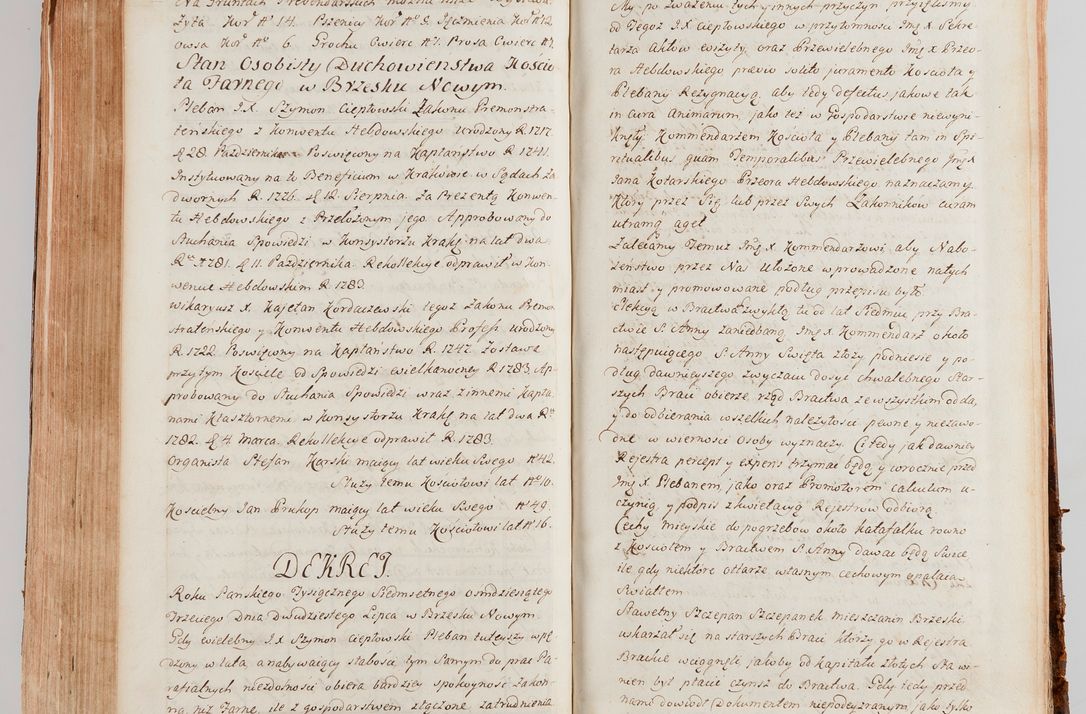 Na Gruntach Prebendarskich można mieć
Żyta Kor N 14. Pszenicy Kor N 8. Jęczmienia Kor N 12
owsa Kor No 6. Grochu Cwierc N 1. Prosa Cwierc N 1.
Stan Osobisty Duchowienstwa Koscio
ła Farnego w Brzesku Nowym.
Pleban J.X. Szymon Ciepłowski Zakonu Premonstra-
teńskiego z Konwentu Hebdowskiego urodzony R. 1717.
d. 28. Pazdziernika Poswięcony na Kapłaństwo R. 1741.
Instytuowany na to Beneficium w Krakowie w Sądach Za
dwornych R. 1776. d. 12. Sierpnia. Za Prezentą Konwen-
tu Hebdowskiego z Przełozonym jego. Approbowany do
Słuchania Spowiedzi w Konsystorzu Krakl. na lat dwa
R. 1781. d. 11. Pazdziernika. Rekollekcye odprawił w Kon-
wencie Hebdowskim R. 1783.
Wikaryusz X. Kajetan Kordaszewski tegoz Zakonu Premon
straterńskiego y Konwentu Hebdowskiego Profess urodzony
R. 1722. Poswięcony na Kapłaństwo R. 1747. Zostawa
przy tym Kosciele od Spowiedzi wielkanocney R. 1783. Ap-
probowany do Słuchania Spowiedzi wraz z innemi Kapła-
nami Klasztornemi w Konsystorzu Krakl. na lat dwa
1782. d. 4. Marca. Rekollekcye odprawił R. 1783.
Organista Stefan Karski maiący lat wieku Swego N 42.
Służy temu Kosciołowi lat No 10.
Koscielny Jan Prukop maiący lat wieku Swego N 49.
Służy temu Kosciołowi lat N 16.
DEKRET.
Roku Panskiego Tysiącznego Siedmsetnego osmdziesiątego
Trzeciego Dnia Dwudziestego Lipca w Brzesku Nowym.
Gdy wielebny J.X. Szymon Ciepłowski Pleban tuteyszy wpę
dzony w lata, a nabywaiący słabości tym Samym do prac Pa-
rafialnych niezdolności obiera bardziey spokoyność Zakon-
ną niz Farne, ile z gospodarstwem złączone zatrudnienia
My po zwazeniu tych y innych przyczyn przyieliśmy
od Tegoz J.X. Ciepłowskiego w przytomności Jmć X. Sekre
tarza Aktow wizyty, oraz Przewielebnego Jmć X. Przeo-
ra Hebdowskiego prævio solito juramento Kościoła y
Plebany Rezygnacyą, aby tedy defectus jakowe tak
in cura Animarum, jako tez w Gospodarstwie niewyni-
knęły. Kommendarzem Kościoła y Plebany tam in Spi-
ritualibus quam Temporalibus Przewielebnego Jmć X
Jana Kotarskiego Przeora Hebdowskiego naznaczamy.
Który przez Się, lub przez Swych Zakonnikow curam
utramq aget.
Zalecamy Temuz Jmć X. Kommendarzowi, aby Nabo-
zeństwo przez Nas Ułozone wprowadzone na tych
miast y promowowane podług przepisu było.
Elekcyą w Bractwie Zwykłą tu od lat Siedmiu przy Bra-
ctwie S. Anny zaniedbaną Jmć X. Kommendarz około
następuiącego S. Anny Swięta złozy podniesie y po-
dług dawnieyszego zwyczaiu dosyć chwalebnego Star-
szych Braci obierze rząd Bractwa ze wszystkim odda,
y do odbierania wszelkich nalezytości pewne y niezawo-
dne w wierności osoby wyznaczy. Ci tedy jak dawniey
Rejestra percept y expens trzymać będą y corocznie przed
Jmć X. Plebanem, jako oraz Promotorem calculum u-
czynią, y podpis z kwietacyą Rejestrow odbiorą.
Cechy mieyskie do pogrzebow około katafalku rowno
z Kościołem y Bractwem S. Anny dawać będą Swiece,
ile gdy niektóre ołtarze własnym cechowym opalaią
Swiatłem
Sławetny Szczepan Szczepanek mieszczanin Brzeski
uskarzał się na starszych Braci którzy go w Rejestra
Brackie wciągnęli, jakoby od kapitału złotych Sta wi-
nien był płacić czynsz do Bractwa. Gdy tedy przed
nami dowiodł Dokumentem niepodeyzranym, jako tylko